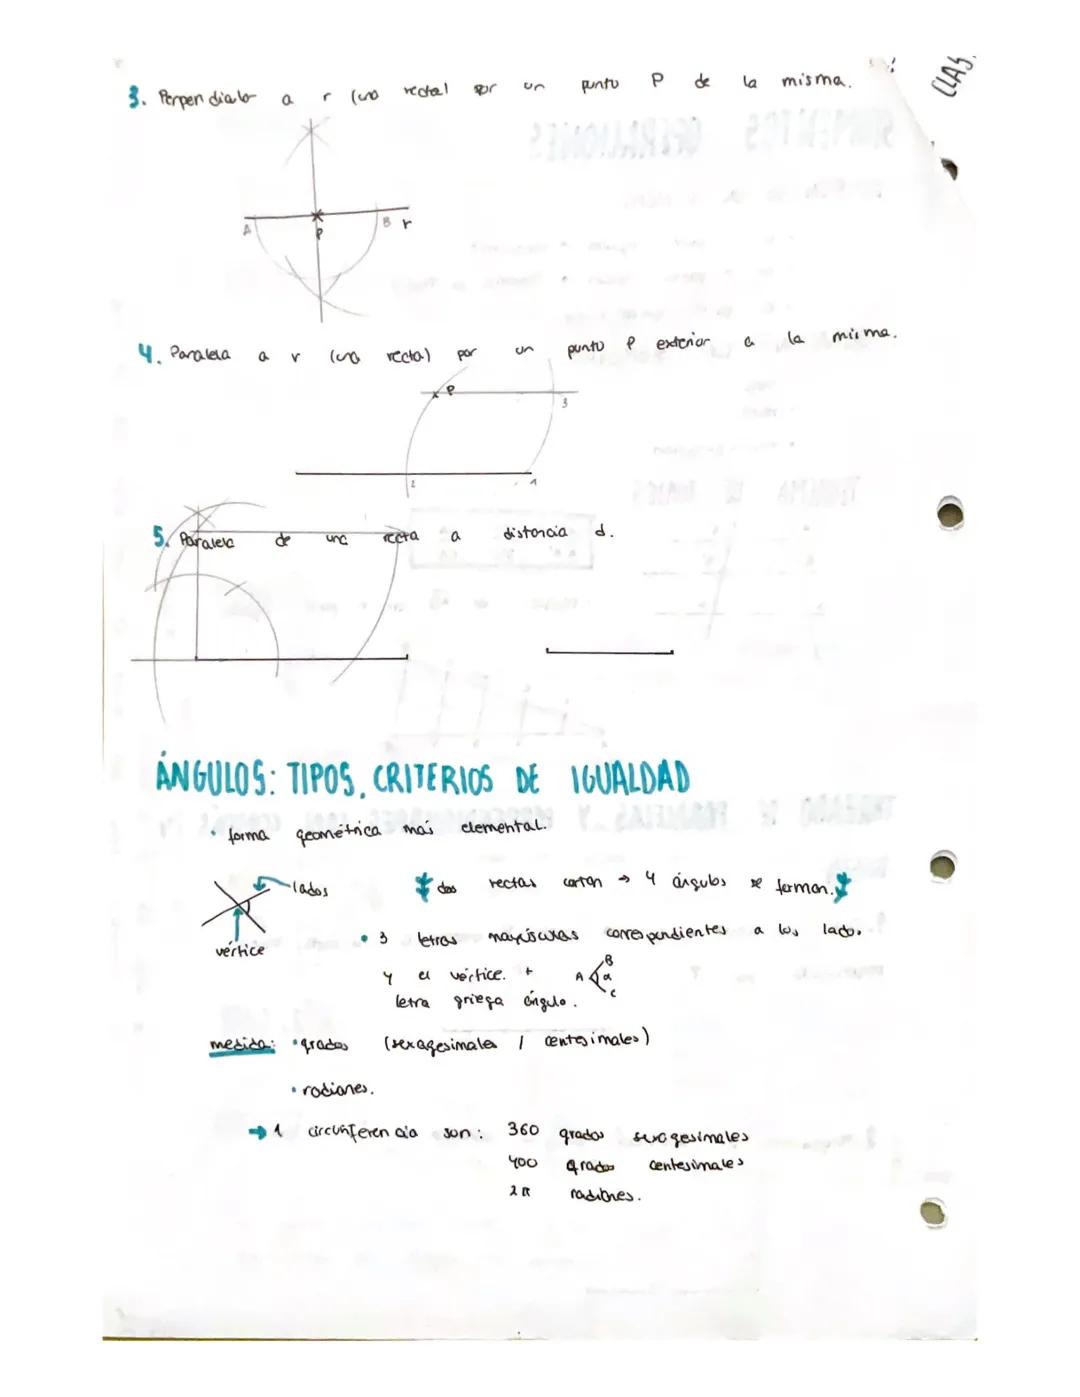 3. Perpendialo a r (una recta) por un punto P de la misma.
CLAS.
A P B r
4. Paralela a r (una recta) por un punto P exterior a la misma.
P
3
2 1
5. Paralela de una recta a distancia d.
ÁNGULOS: TIPOS, CRITERIOS DE IGUALDAD
• forma geométrica más elemental.
lados
dos rectas cortan → 4 ángulos se forman.
vértice
• 3 letras mayúsculas correspondientes a los lado.
y el vértice. +
letra griega ángulo.
B
A α
C
medida: • grados (sexagesimales / centesimales)
• radianes.
→ 1 circunferencia son: 360 grados sexagesimales
400 grados centesimales
2π radianes.